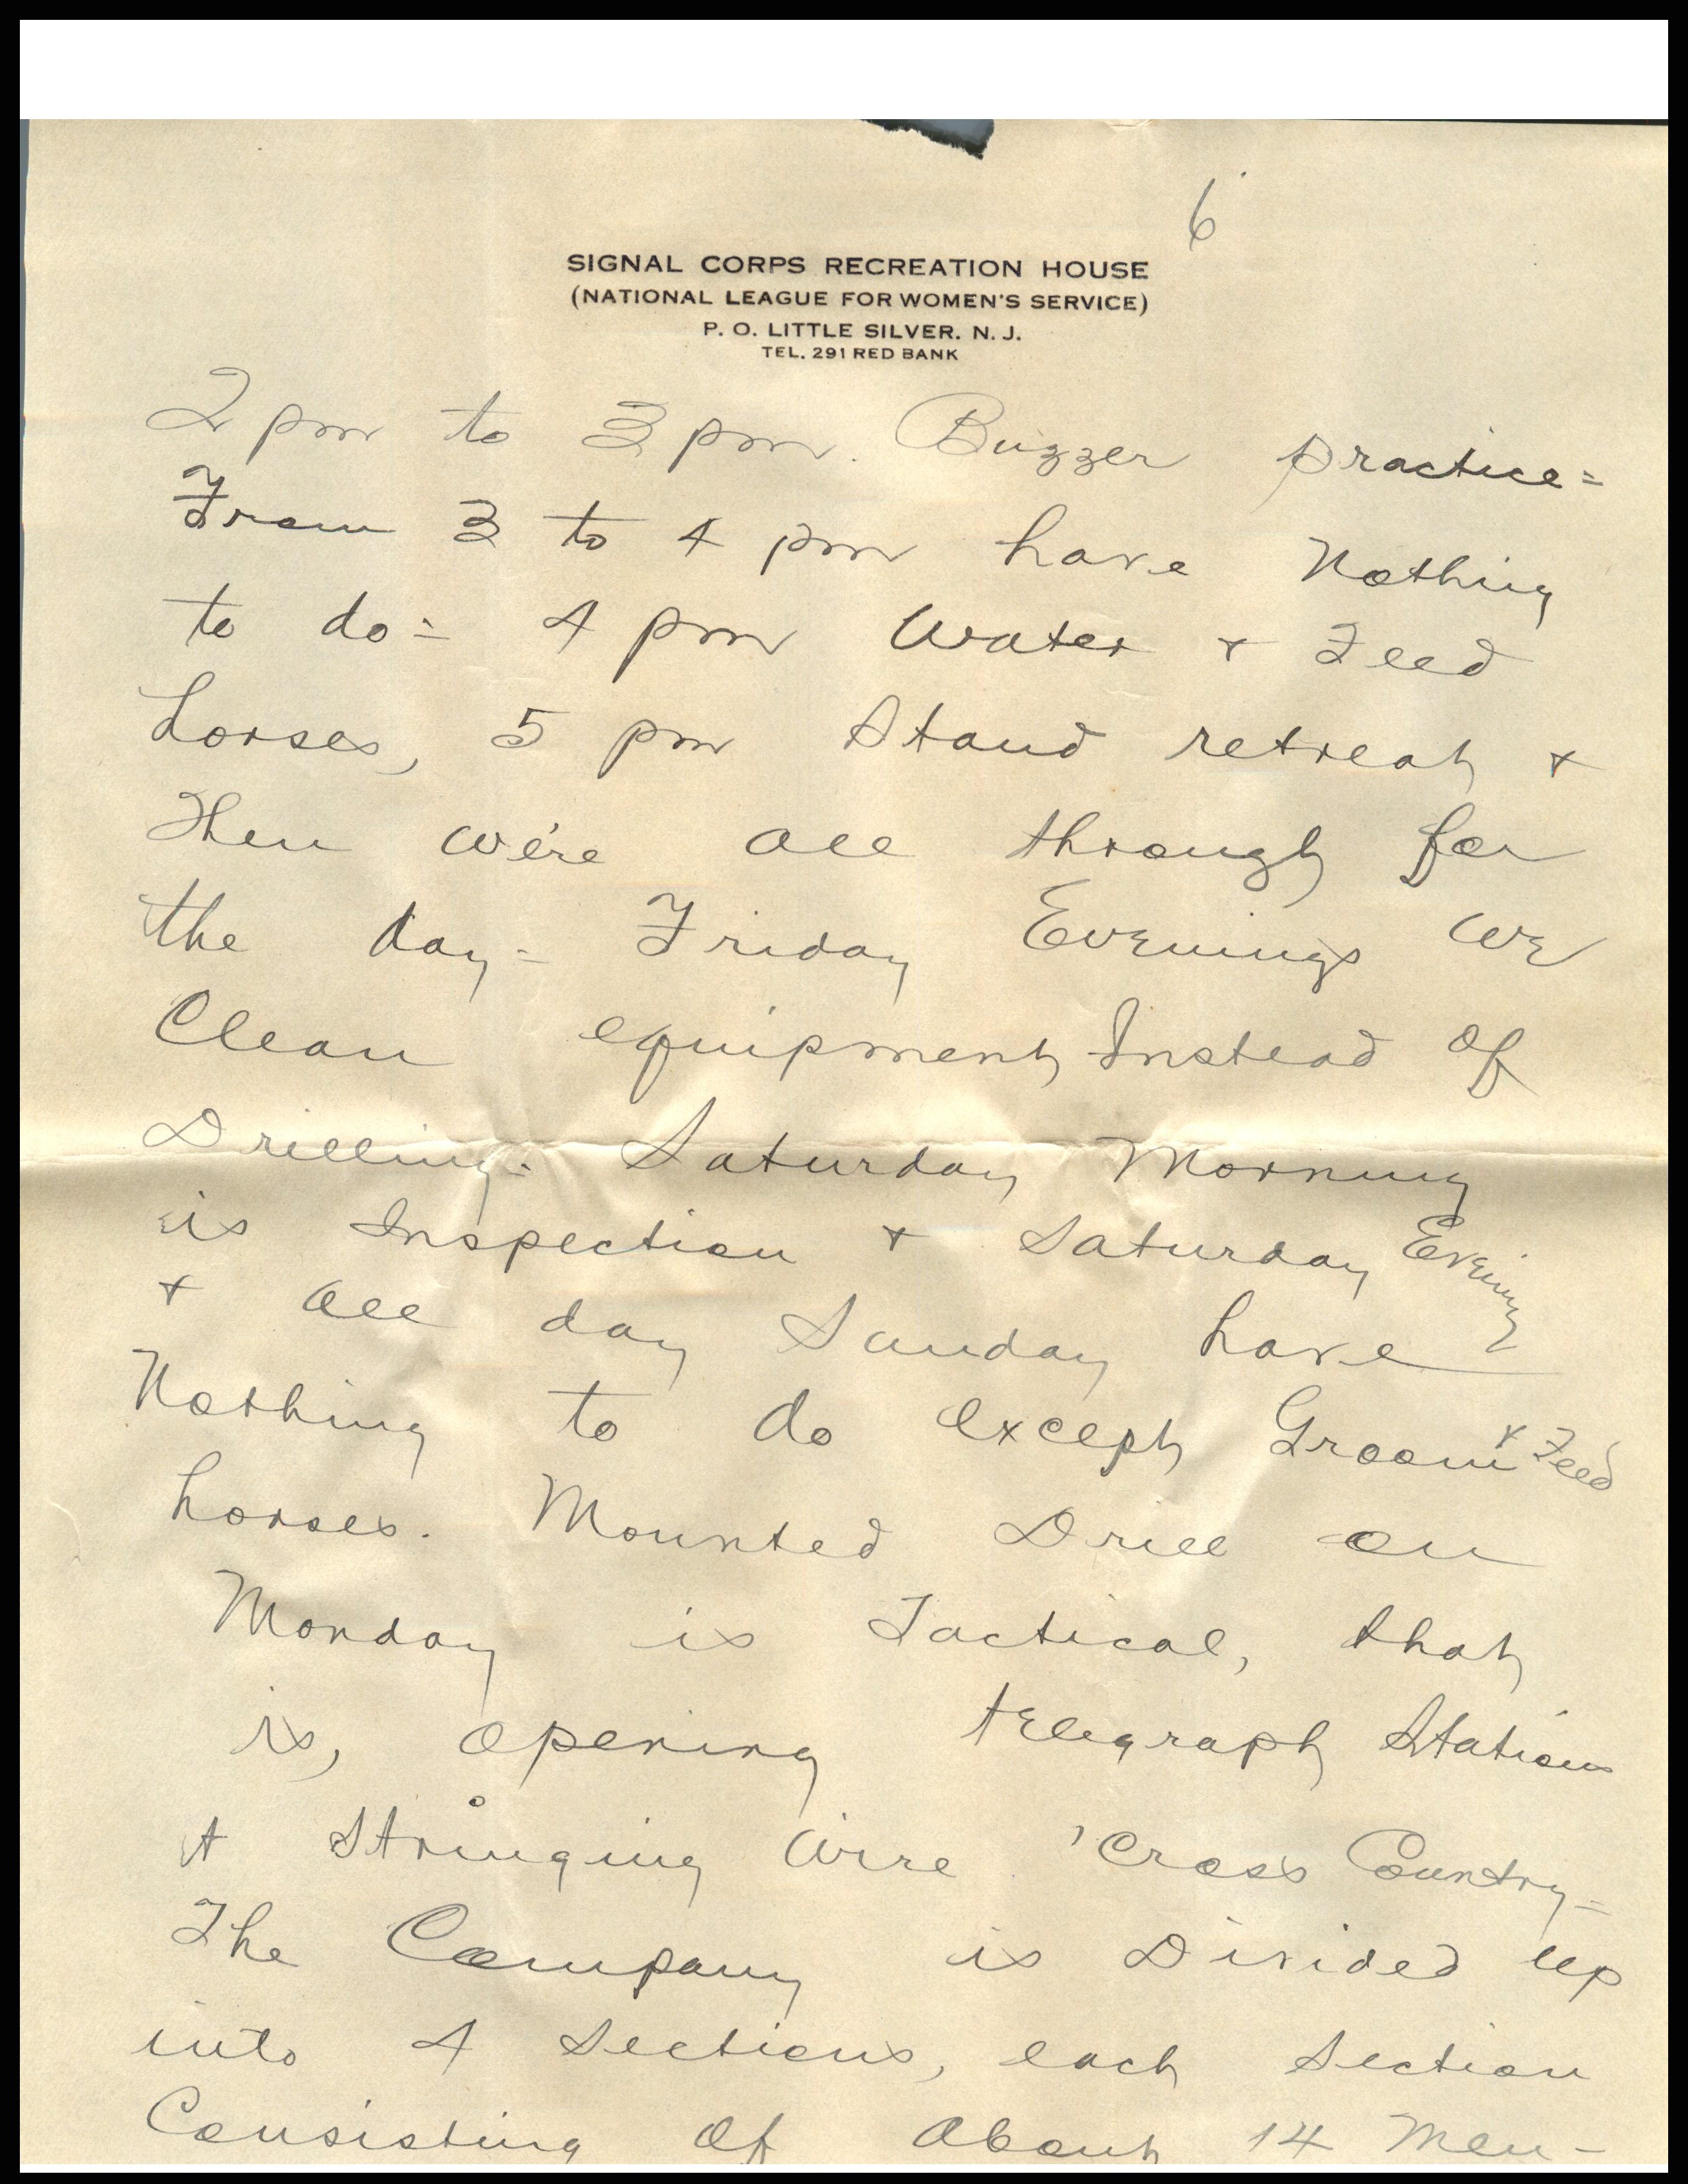 6
SIGNAL CORPS RECREATION HOUSE
(NATIONAL LEAGUE FOR WOMEN'S SERVICE)
P. O. LITTLE SILVER. N. J.
TEL. 291 RED BANK
2 pm to 3 pm. Buzzer practice =
From 3 to 4 pm have Nothing
to do = 4 pm Water + Feed
horses, 5 pm Stand retreat +
Then we're all through for
the day = Friday Evenings we
Clean equipment, Instead of
Drilling. Saturday Morning
is Inspection + Saturday Evening
+ all day Sunday have
Nothing to do except Groom + Feed
horses. Mounted Drill on
Monday is Tactical, that
is, opening telegraph Stations
+ Stringing Wire 'Cross Country =
The Company is Divided up
into 4 Sections, each Section
Consisting of About 14 Men -